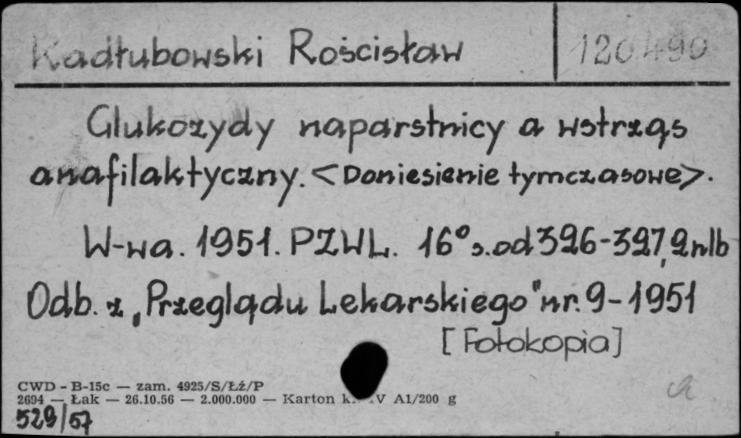 Kadłubowski Rościsław 120490
Glukozydy naparstnicy a wstrząs
anafilaktyczny. <Doniesienie tymczasowe>.
W-wa. 1951. PZWL. 16° s. od 326-327, 2nlb
Odb. z „Przeglądu Lekarskiego" nr. 9-1951
[Fotokopia]
CWD - B-15c — zam. 4925/S/Łź/P
2694 — Łak — 26.10.56 — 2.000.000 — Karton A1/200 g
529/57